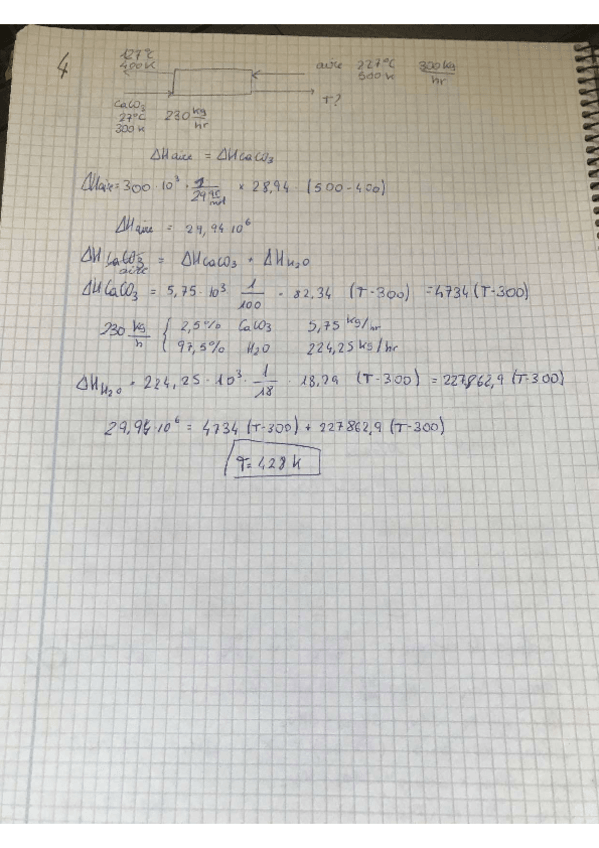 4
127ºC
400K
aire 227ºC 300 kg/hr
500K
CaCO3
27ºC 230 kg/hr
300K
T?
ΔHaire = ΔHCaCO3
ΔHaire = 300 · 10³ · 1/29 gr/mol × 28,94 · (500 - 400)
ΔHaire = 29,94 · 10⁶
ΔH CaCO3 aire = ΔHCaCO3 + ΔHH2O
ΔHCaCO3 = 5,75 · 10³ 1/100 · 82,34 (T-300) = 4734 (T-300)
230 kg/h { 2,5% CaCO3 5,75 kg/hr
97,5% H2O 224,25 kg/hr
ΔHH2O = 224,25 · 10³ · 1/18 · 18,29 (T-300) = 227862,9 (T-300)
29,94 · 10⁶ = 4734 (T-300) + 227862,9 (T-300)
T = 428 K